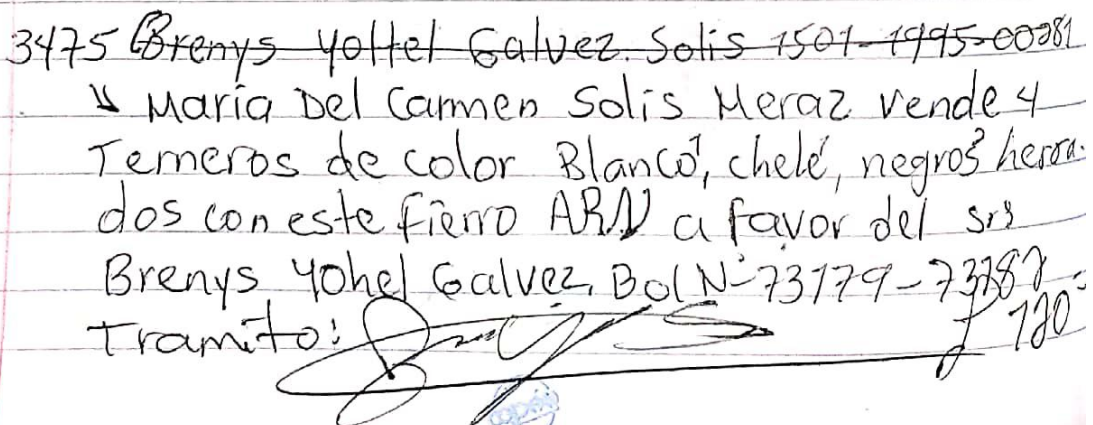 3475 Brenys Yohel Galvez. Solis 1501-1995-00281
Maria Del Carmen Solis Meraz vende 4
Terneros de color Blanco1, chele1, negros2 herra-
dos con este fierro ARN a favor del srs
Brenys Yohel Galvez. Bol Nº 73179-73182
Tramito: 120